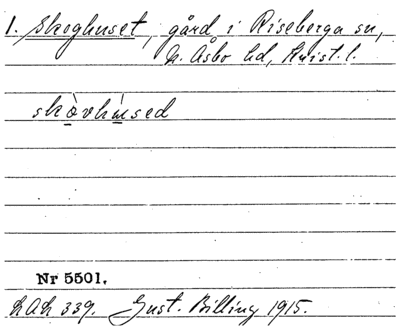 1. Skoghuset, gård i Riseberga sn,
N. Åsbo hd, Krist. l.
skòvhúsed
Nr 5501.
LAL 339. Gust. Billing 1915.